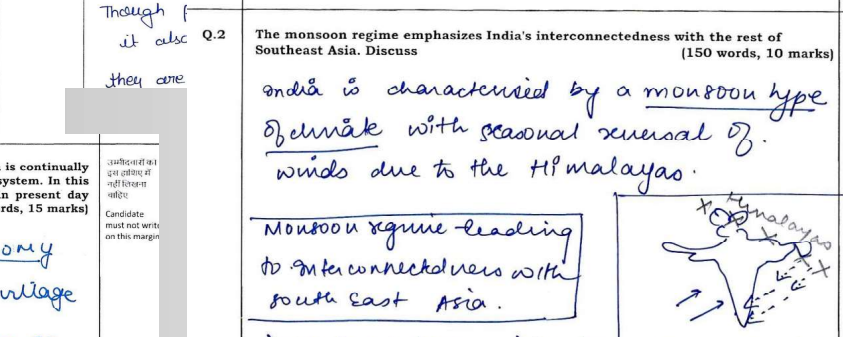 Though
it also
they are
is continually
system. In this
n present day
rds, 15 marks)
उम्मीदवारों को
इस हाशिए में
नहीं लिखना
चाहिए
Candidate
must not write
on this margin
omy
village
Q.2
The monsoon regime emphasizes India's interconnectedness with the rest of
Southeast Asia. Discuss
(150 words, 10 marks)
India is characterised by a monsoon type
of climate with seasonal reversal of
winds due to the Himalayas.
Monsoon regime leading
to interconnectedness with
South East Asia.
Himalayas